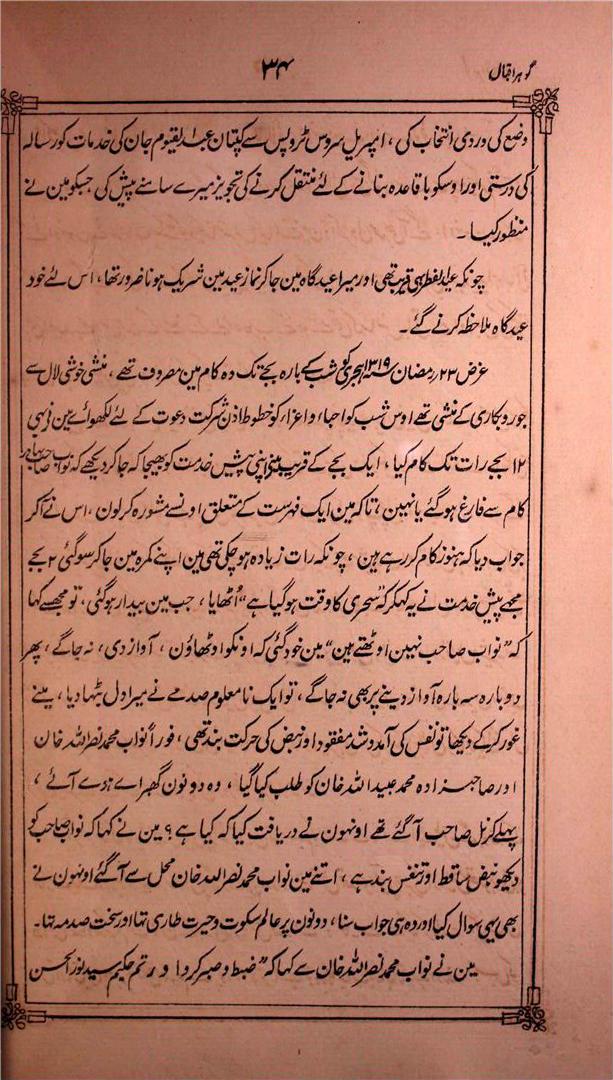 گوہر اقبال
۳۴
وضع کی وردی انتخاب کی، امپریل سروس ٹروپس سے کپتان عبدالقیوم جان کی خدمات کو رسالہ
کی درستی اور اوسکو باقاعدہ بنانے کے لئے منتقل کرنے کی تجویز میرے سامنے پیش کی جسکو مین نے
منظور کیا۔
چونکہ عیدالفطر بھی قریب تھی اور میرا عیدگاہ مین جاکر نماز عید مین شریک ہونا ضرور تھا، اس لئے خود
عیدگاہ ملاحظہ کرنے گئے۔
غرض ۲۳؍رمضان ۱۳۱۹ہجری کی شب کے بارہ بجے تک وہ کام مین مصروف تھے، منشی خوشی لال سے
جو روبکاری کے منشی تھے اوس شب کو احباء و اعزاء کو خطوط اذن شرکت دعوت کے لئے لکھوائے مین نے بھی
۱۲ بجے رات تک کام کیا، ایک بجے کے قریب مینے اپنی پیش خدمت کو بھیجا کہ جاکر دیکھے کہ نواب صاحب بہادر
کام سے فارغ ہوگئے یا نہین، تاکہ مین ایک فہرست کے متعلق اونسے مشورہ کرلون، اس نے آکر
جواب دیا کہ ہنوز کام کررہے ہین، چونکہ رات زیادہ ہوچکی تھی مین اپنے کمرہ مین جاکر سوگئی ۲ بجے
مجھے پیش خدمت نے یہ کہکر کہ ”سحری کا وقت ہوگیا ہے“ اُٹھایا، جب مین بیدار ہوگئی، تو مجھسے کہا
کہ ”نواب صاحب نہین اوٹھتے ہین“ مین خود گئی کہ اونکو اوٹھاؤن، آواز دی، نہ جاگے، پھر
دوبارہ سہ بارہ آواز دینے پر بھی نہ جاگے، تو ایک نامعلوم صدمے نے میرا دل بٹھا دیا، مینے
غور کرکے دیکھا تو نفس کی آمدوشد مفقود اور نبض کی حرکت بند تھی، فوراً نواب محمد نصراللہ خان
اور صاحبزادہ محمد عبیداللہ خان کو طلب کیا گیا، وہ دونون گھبرائے ہوئے آئے،
پہلے کرنل صاحب آگئے تھے اونہون نے دریافت کیا کہ کیا ہے؟ مین نے کہا کہ نواب صاحب کو
دیکھو نبض ساقط اور تنفس بند ہے، اتنے مین نواب محمد نصراللہ خان محل سے آگئے اونہون نے
بھی یہی سوال کیا اور وہ ہی جواب سنا، دونون پر عالم سکوت و حیرت طاری تھا اور سخت صدمہ تھا۔
مین نے نواب محمد نصراللہ خان سے کہا کہ ”ضبط و صبر کرو اور تم حکیم سید نورالحسن